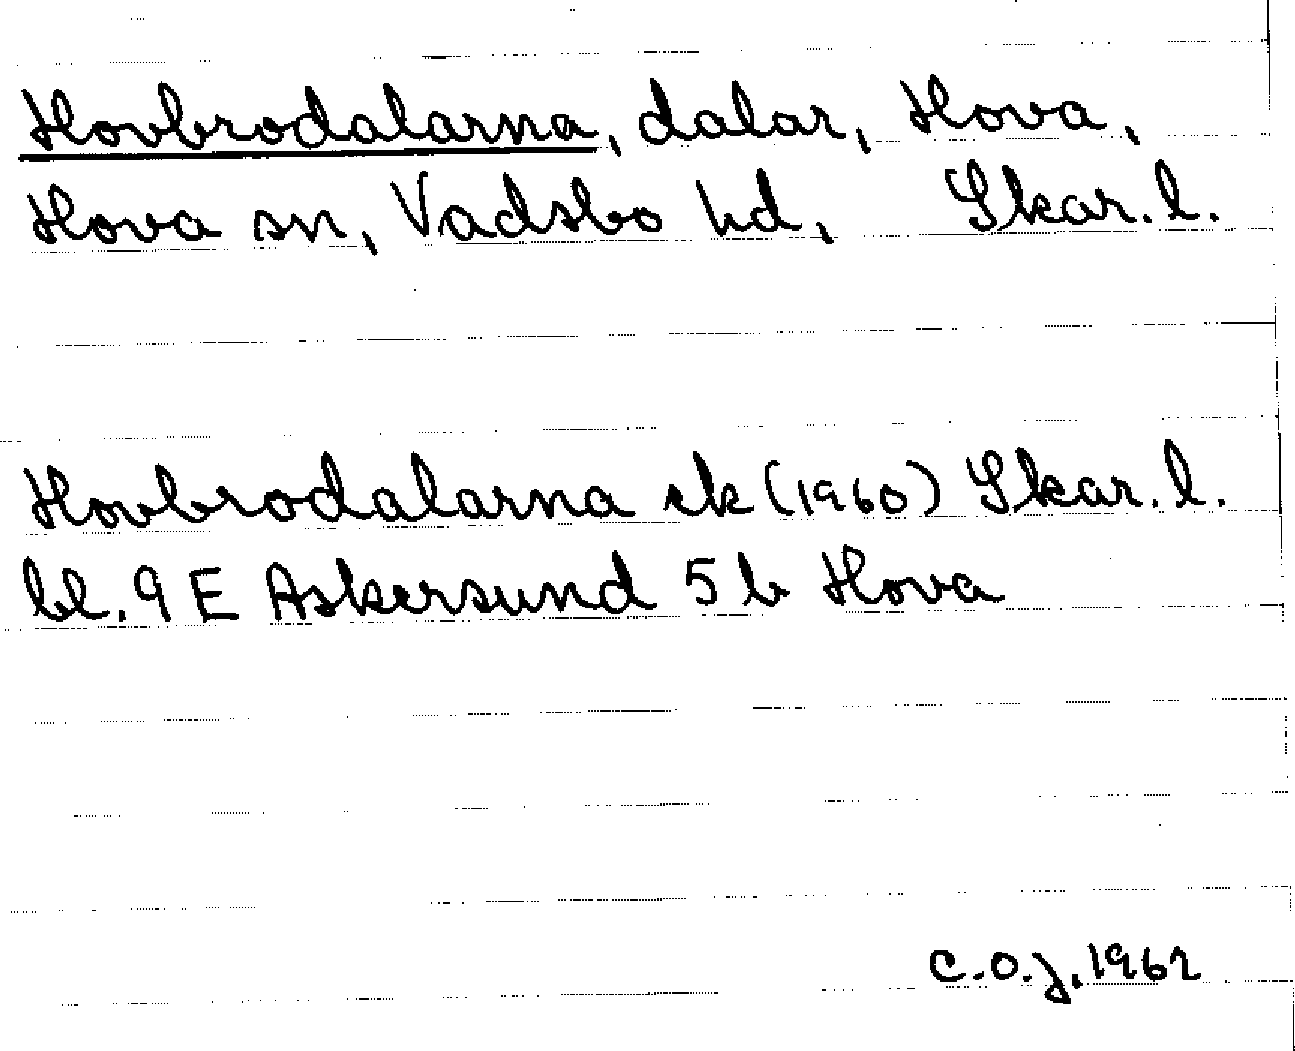 Hovbrodalarna, dalar, Hova,
Hova sn, Vadsbo hd, Skar. l.
Hovbrodalarna ek (1960) Skar. l.
bl. 9 E Askersund 5 b Hova
C.O.J. 1962